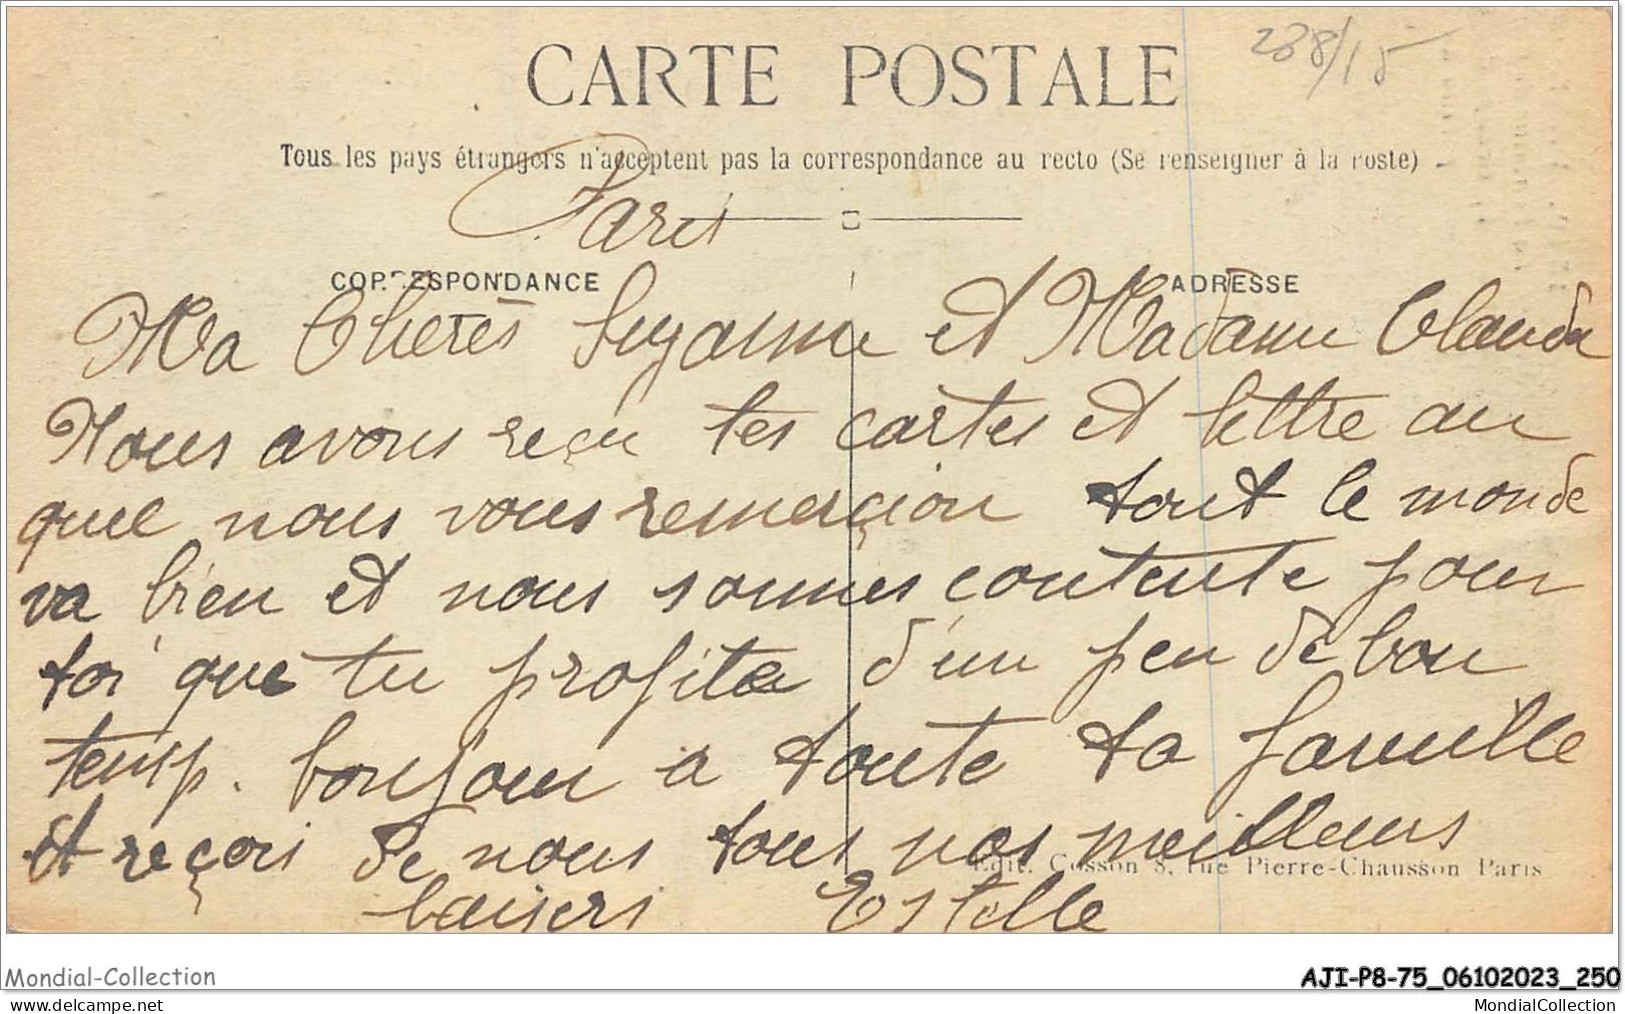 238/15
CARTE POSTALE
Tous les pays étrangers n'acceptent pas la correspondance au recto (Se renseigner à la Poste)
Paris
CORRESPONDANCE ADRESSE
Ma Chères Suzanne et Madame
Nous avons reçu tes cartes et lettre au
quel nous vous remerçion tout le monde
va bien et nous sommes contente pour
toi que tu profite d'un peu de bon
temp. bonjour a toute ta famille
et reçois de nous tous nos meilleurs
Edit. Cosson 8, rue Pierre-Chausson Paris
baisers Estelle
Mondial-Collection
AJI-P8-75_06102023_250
www.delcampe.net
MondialCollection